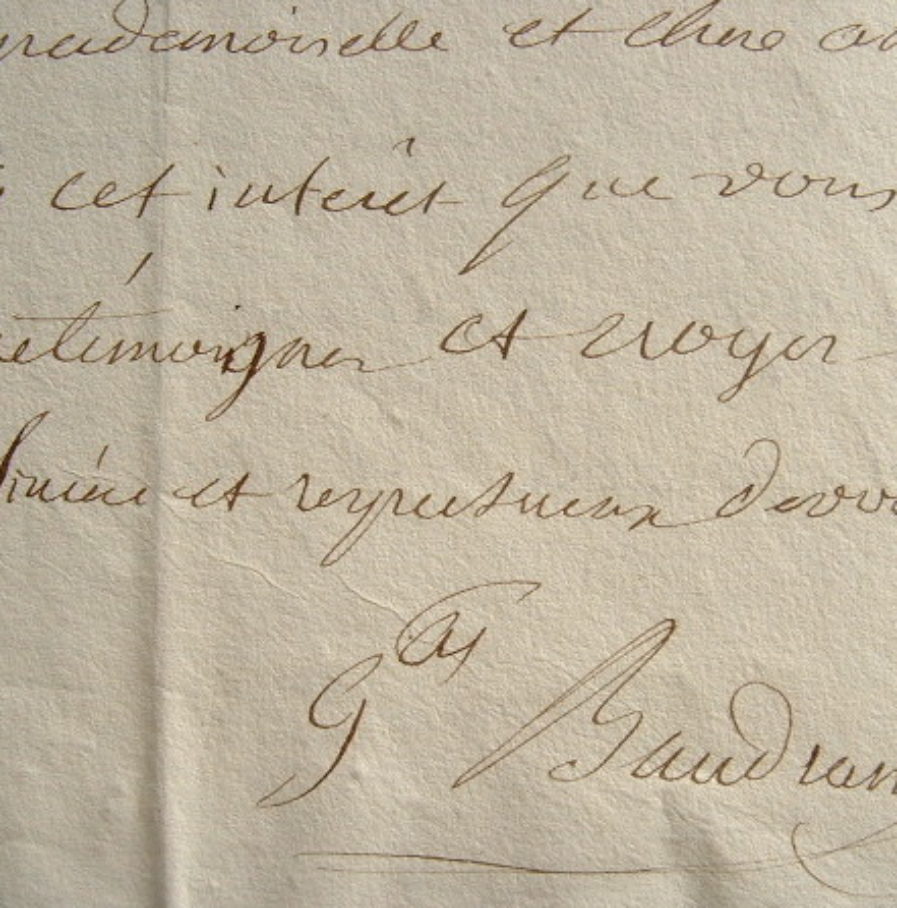 mademoiselle et chere
cet intérêt que vous
témoigner et croyez
sincère et respectueux
Baudran